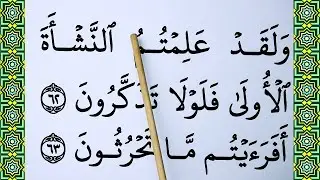 وَلَقَدْ عَلِمْتُمُ ٱلنَّشْأَةَ
ٱلْأُولَىٰ فَلَوْلَا تَذَكَّرُونَ ٦٢
أَفَرَءَيْتُم مَّا تَحْرُثُونَ ٦٣